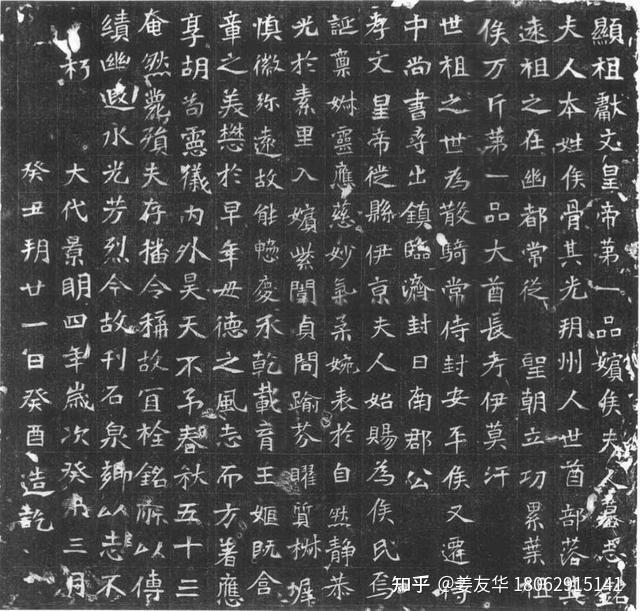 顯祖獻文皇帝第一品嬪侯夫人墓志銘
夫人本姓侯骨其先朔州人世酋部落其
遠祖之在幽都常從聖朝立功累葉祖
俟万斤第一品大酋長考伊莫汗
世祖之世為散騎常侍封安平侯又遷侍
中尚書尋出鎮臨濟封日南郡公
孝文皇帝徙縣伊京夫人始賜為侯氏焉
誕稟婌靈應慈妙氣柔婉表於自然静恭
光於素里入嬪紫闈貞問踰芬曜質椒墀
慎徽弥遠故能憁慶承乾載育王姬既含
章之美懋於早年毋德之風志而方著應
享胡耇靈儀内外昊天不予春秋五十三
奄然薨殞夫存播令稱故宜栓銘所以傳
績幽遐水光芳烈今故刊石泉鄉以志不
朽大代景明四年歲次癸未三月
癸丑朔廿一日癸酉造訖
知乎 @姜友华 18062915141